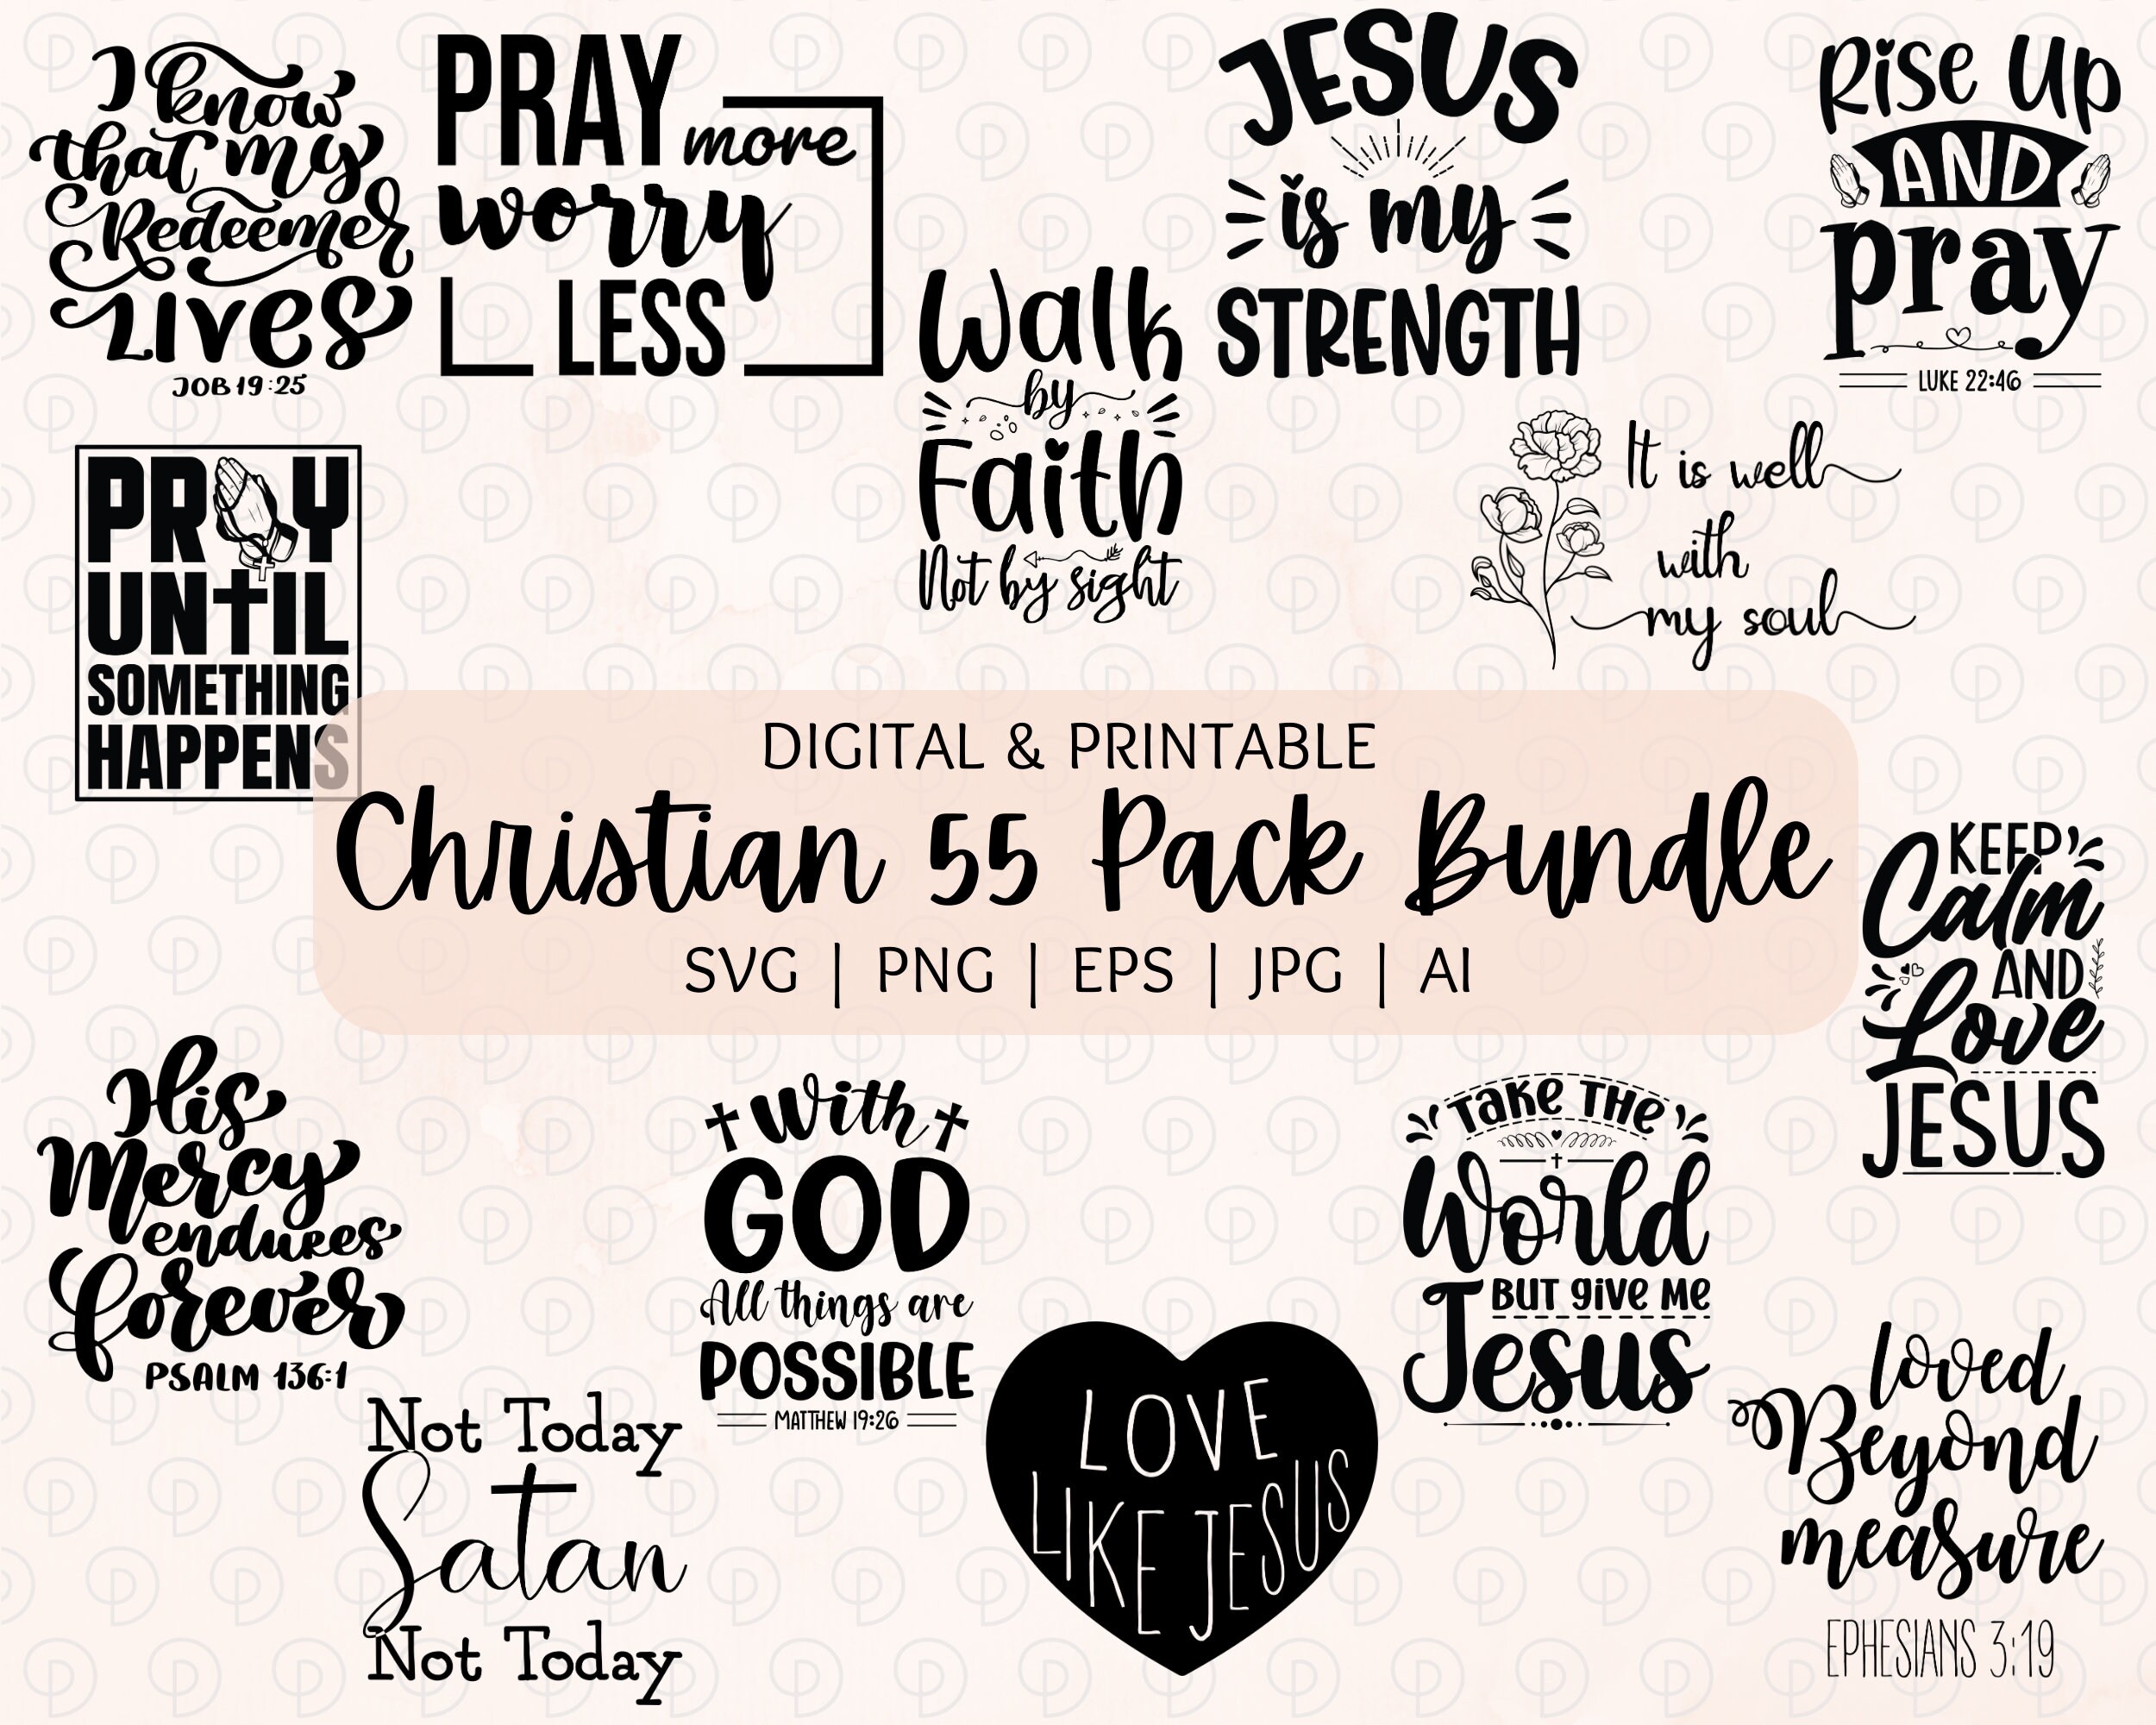 I know
that my
Redeemer
Lives
JOB 19:25
PRAY more
worry
LESS
JESUS
is my
STRENGTH
Rise Up
AND
pray
LUKE 22:46
Walk
by
Faith
Not by sight
It is well
with
my soul
PRAY
UNTIL
SOMETHING
HAPPENS
DIGITAL & PRINTABLE
Christian 55 Pack Bundle
SVG | PNG | EPS | JPG | AI
KEEP
Calm
AND
Love
JESUS
His
Mercy
endures
forever
PSALM 136:1
With
GOD
All things are
POSSIBLE
MATTHEW 19:26
Take THe
World
BUT give Me
Jesus
Not Today
Satan
Not Today
LOVE
LIKE JESUS
loved
Beyond
measure
EPHESIANS 3:19